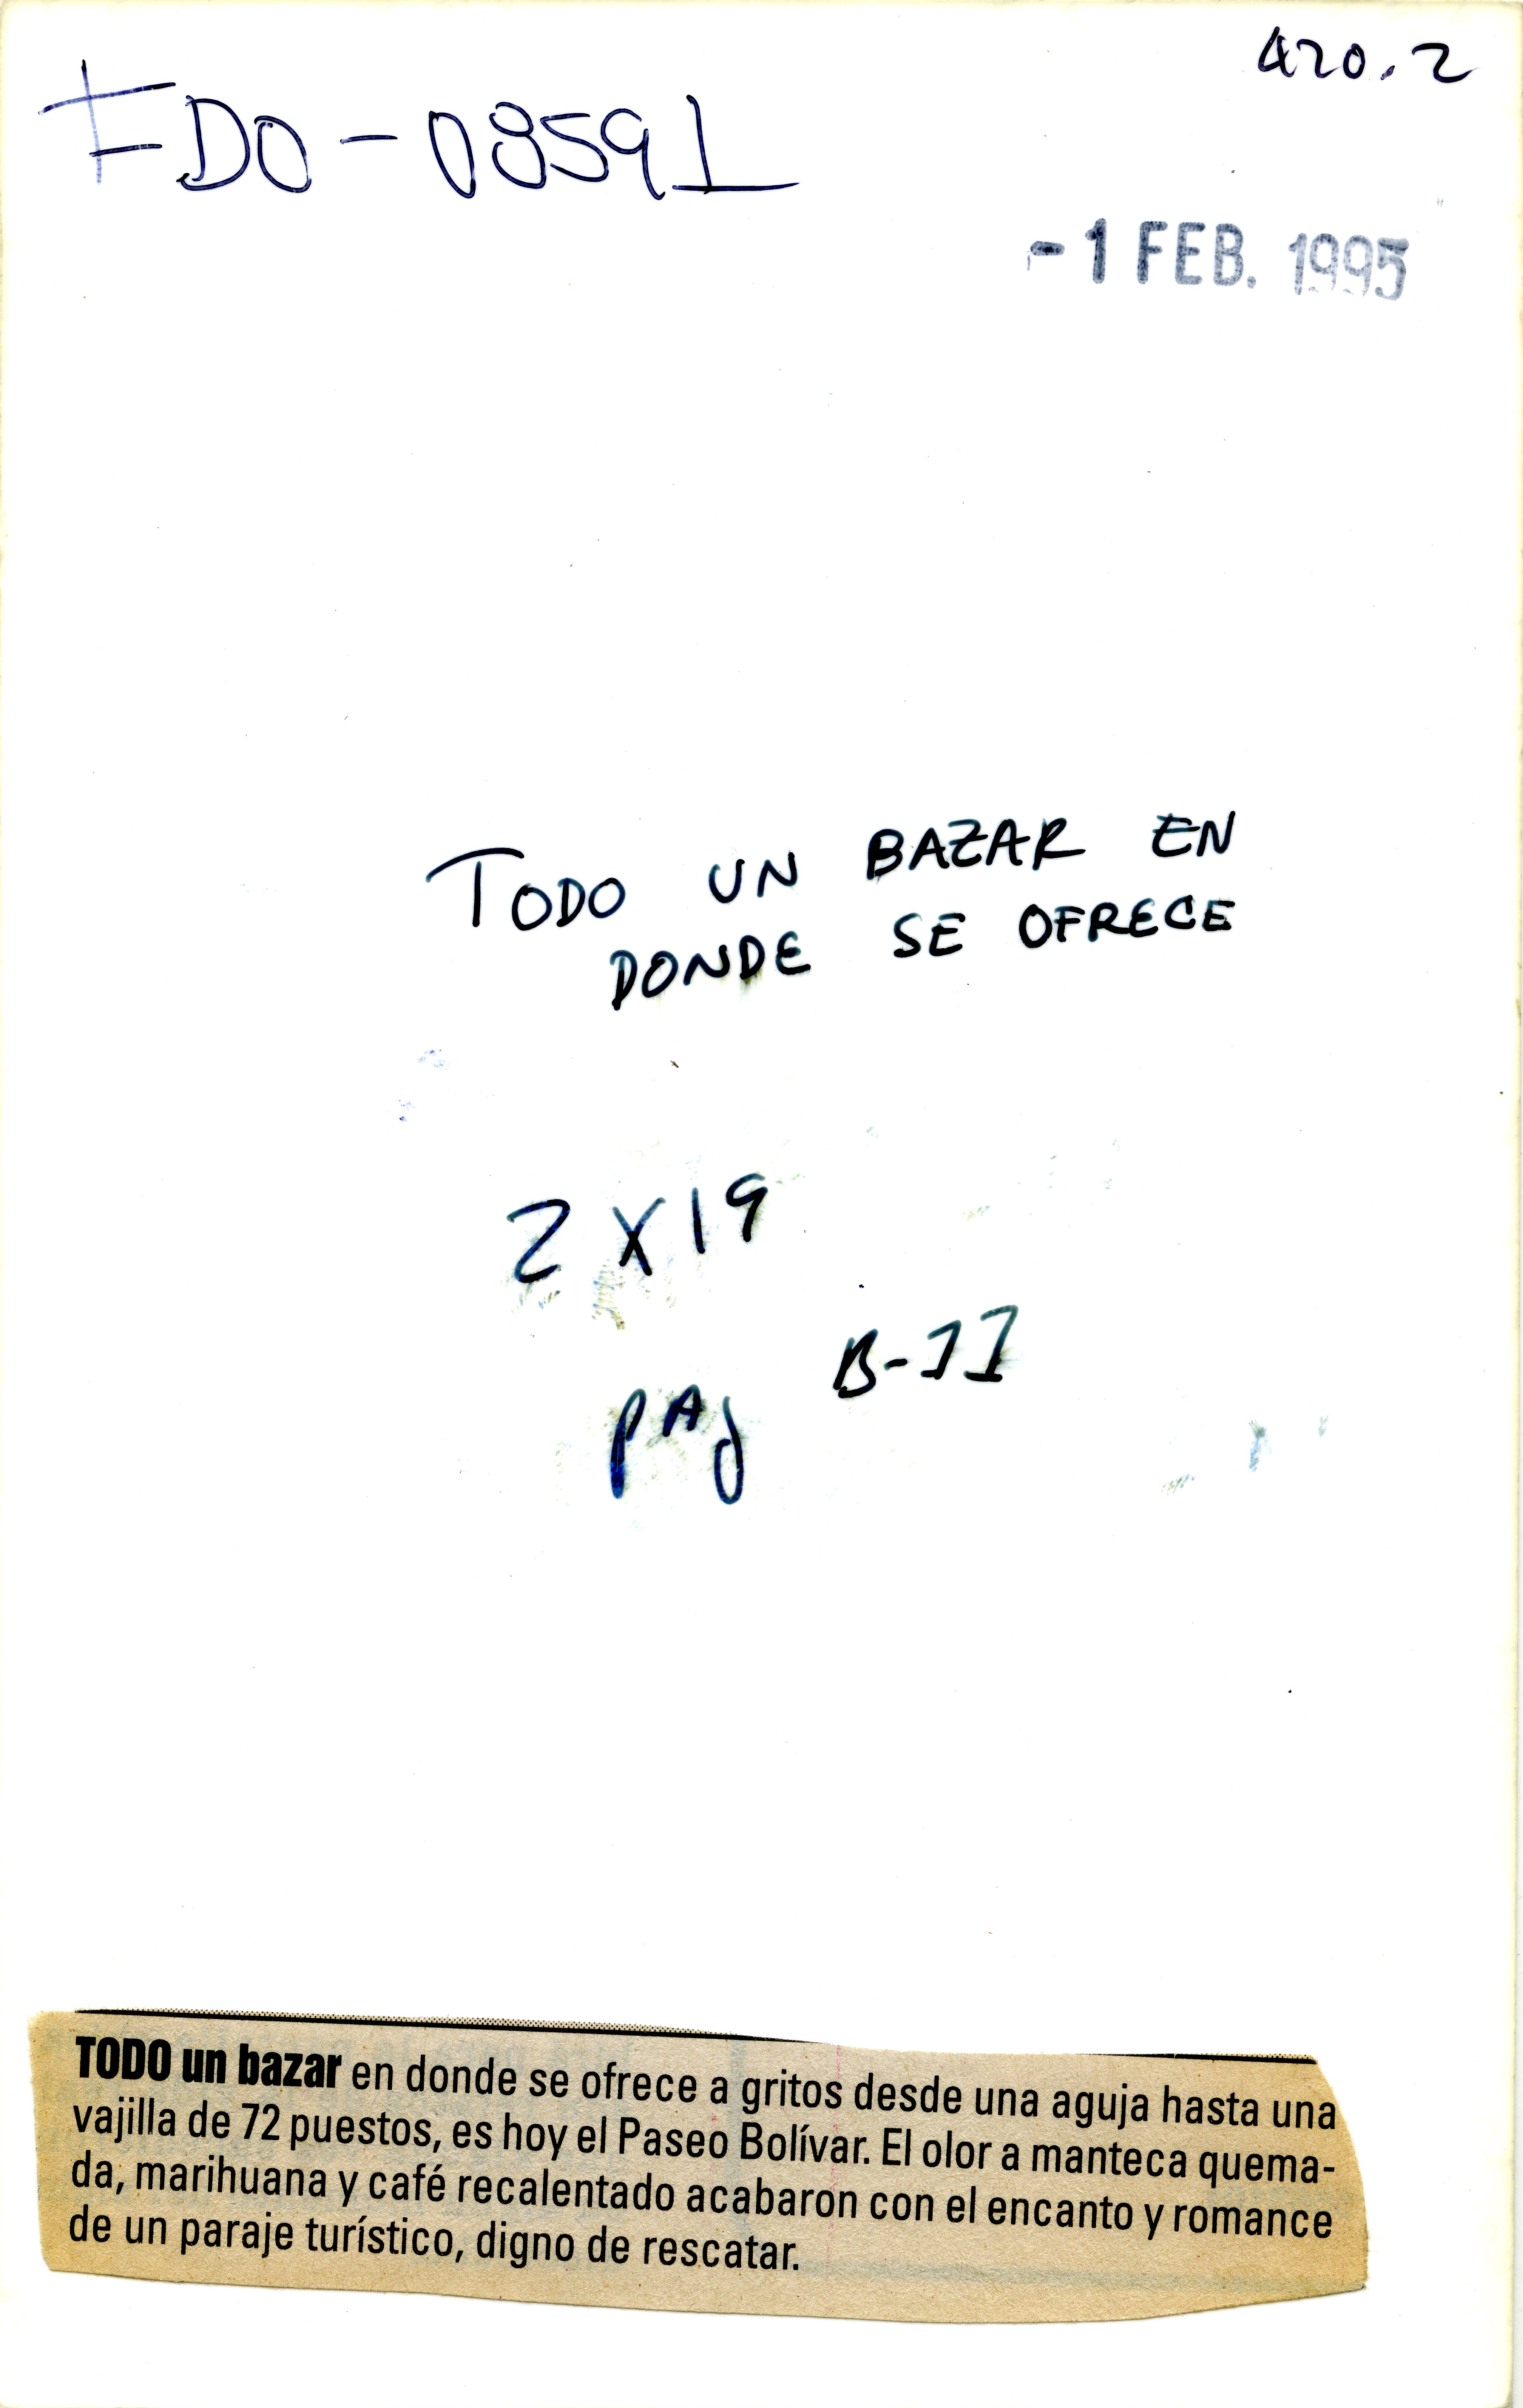 420.2
FDO-08591
-1 FEB. 1995
TODO UN BAZAR EN
DONDE SE OFRECE
2 X 19
PAg B-11
TODO un bazar en donde se ofrece a gritos desde una aguja hasta una
vajilla de 72 puestos, es hoy el Paseo Bolívar. El olor a manteca quema-
da, marihuana y café recalentado acabaron con el encanto y romance
de un paraje turístico, digno de rescatar.